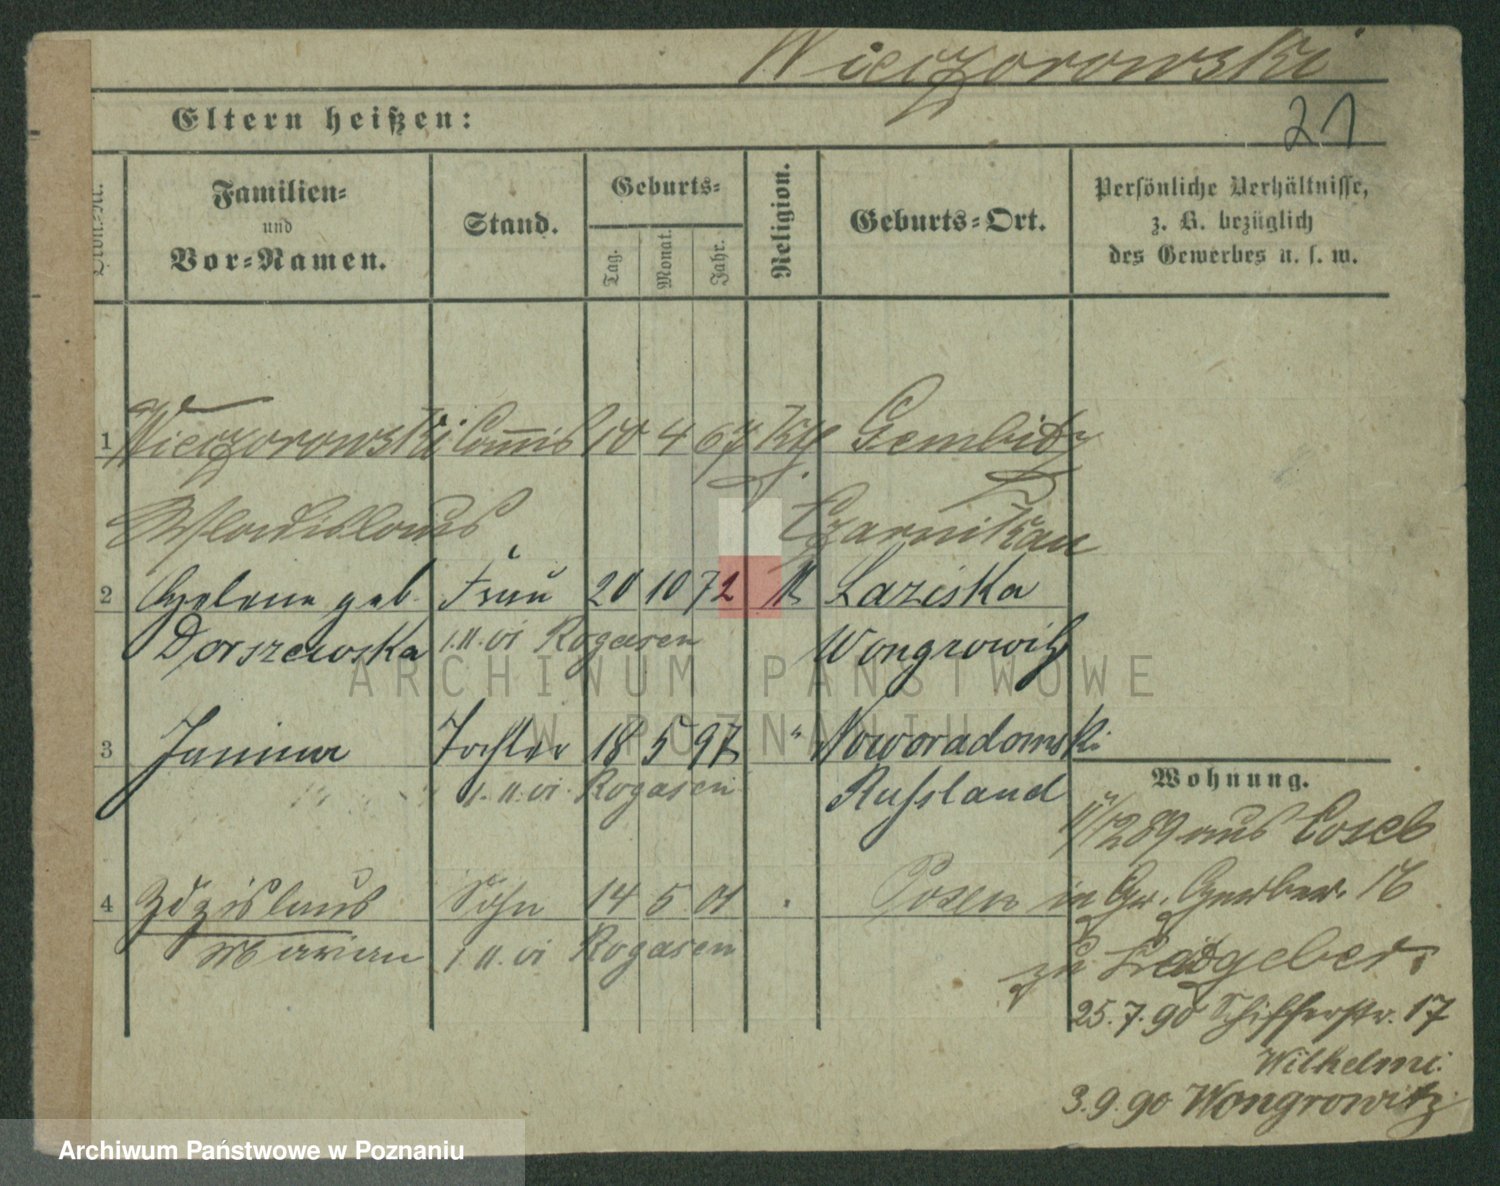 Wieczorowski
21
Eltern heißen:
Familien-
und
Vor-Namen.
Stand.
Geburts-
Tag. Monat. Jahr.
Religion.
Geburts-Ort.
Persönliche Verhältnisse,
z. B. bezüglich
des Gewerbes u. s. w.
1 Wieczorowski Commis 10 4 67 Kth. Gembitz
Wladislaus Czarnikau
2 Helene geb. Frau 20 10 72 Laziska
Dorszewska 1.11.01 Rogasen Wongrowitz
3 Janina Tochter 18 5 97 " Noworadomsk
1.11.01 Rogasen Russland
Wohnung.
289 aus
4 Zdzislaus Sohn 14 5 01 Posen in Gr. Gerber. 16
Marian 1.11.01 Rogasen
zu
25.7.90 Schifferstr. 17
Wilhelmi
3.9.90 Wongrowitz
ARCHIWUM PAŃSTWOWE
W POZNANIU
Archiwum Państwowe w Poznaniu